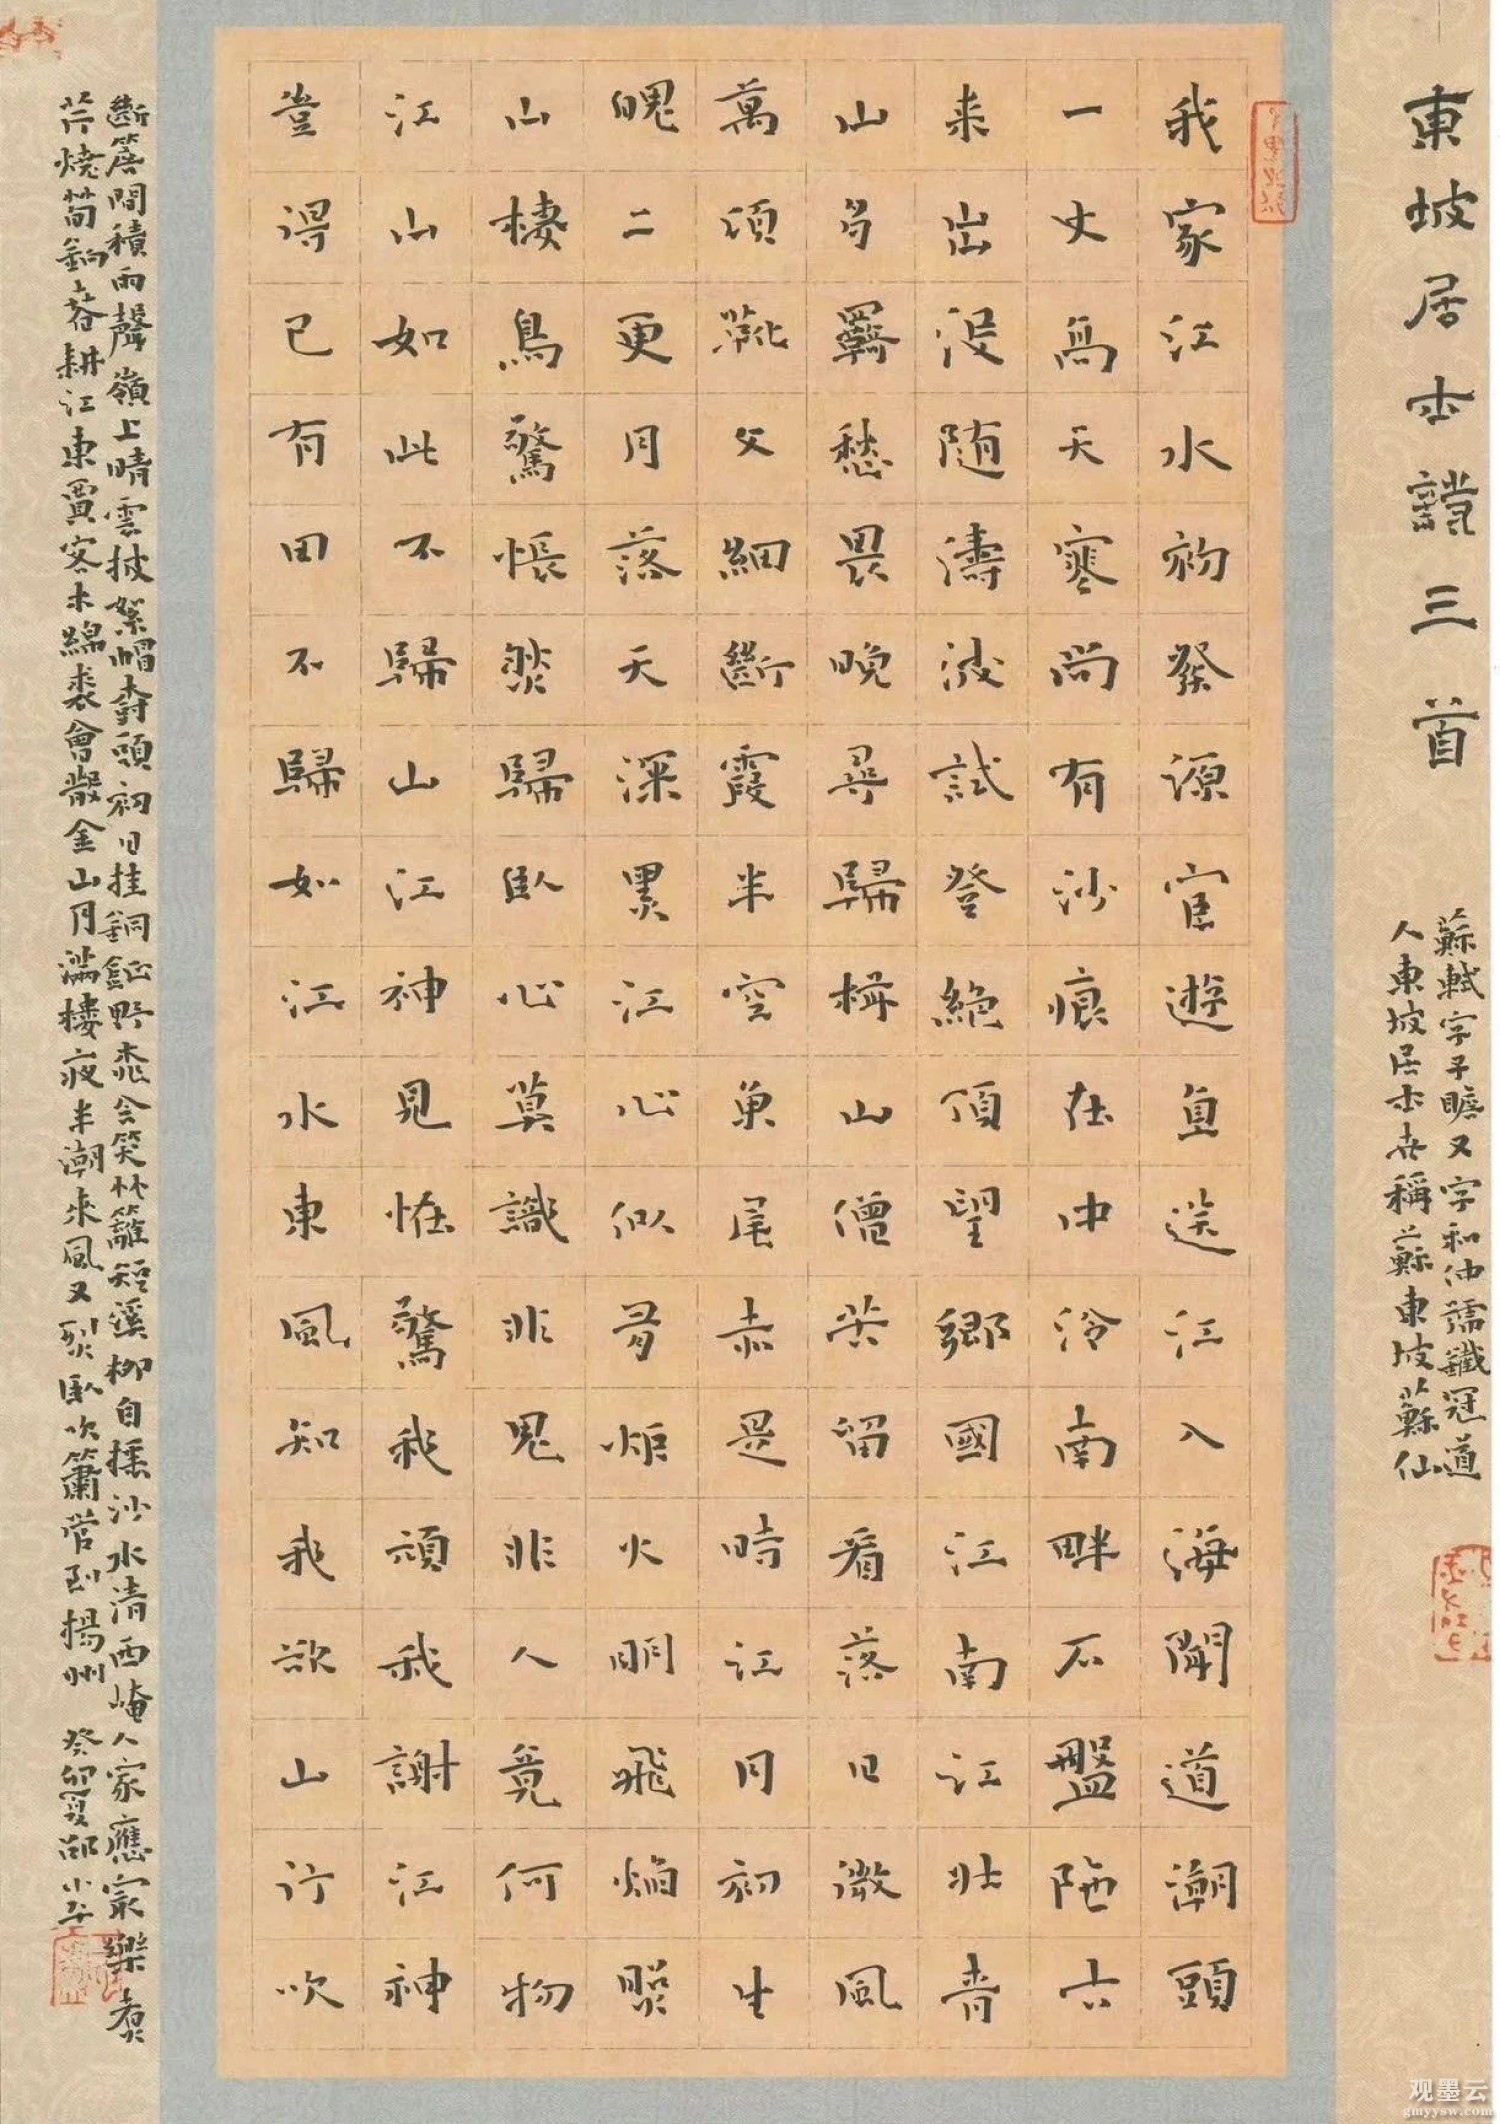 東坡居士詩三首
蘇軾字子瞻又字和仲號鐵冠道
人東坡居士世稱蘇東坡蘇仙
我家江水初發源宦遊直送江入海聞道潮頭
一丈高天寒尚有沙痕在中泠南畔石盤陁古
来出没随濤波試登絕頂望鄉國江南江北青
山多羈愁畏晚尋歸楫山僧苦留看落日微風
萬頃靴文細斷霞半空魚尾赤是時江月初生
魄二更月落天深黑江心似有炬火明飛焰照
山棲鳥驚悵然歸卧心莫識非鬼非人竟何物
江山如此不歸山江神見怪驚我頑我謝江神
豈得已有田不歸如江水東風知我欲山行吹
斷簷間積雨聲嶺上晴雲披絮帽樹頭初日挂銅鉦野桃含笑竹籬短溪柳自搖沙水清西崦人家應最樂煮
芹燒筍餉春耕江東賈客木綿裘會散金山月滿樓夜半潮来風又熟卧吹簫管到揚州 癸卯夏邵小
观墨云
gmyysw.com